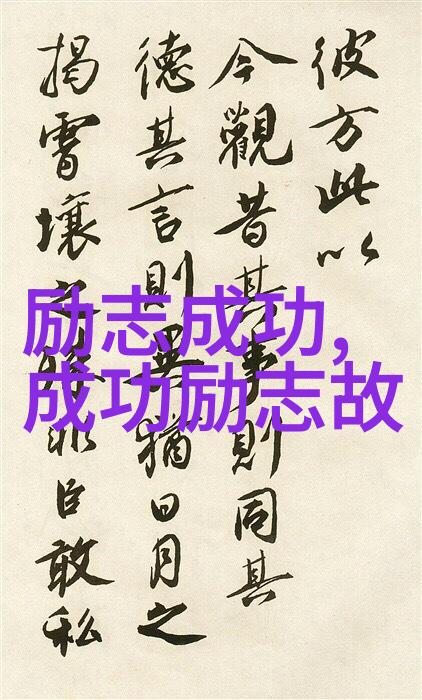 彼方此以
今觀昔其事則同其
德其言則異猶日月之
揭霄壤之殊非臣敢私
励志成功,
成功励志故